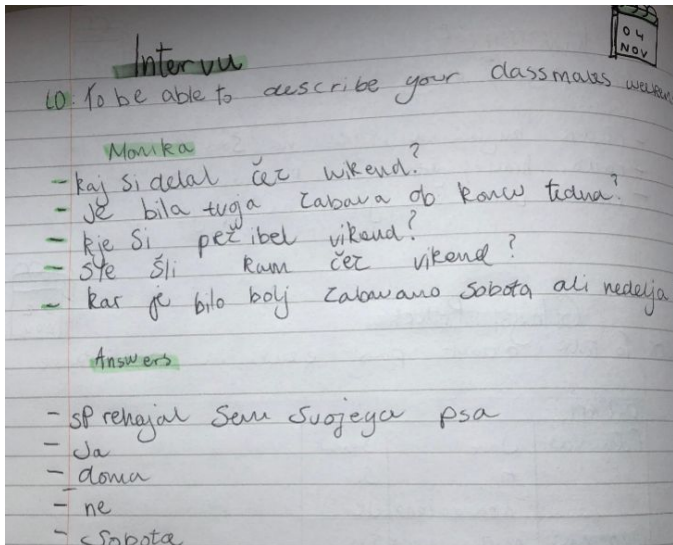 04
NOV
Intervu
LO: To be able to describe your classmates
Monika
- kaj si delal čez wikend?
- je bila tvoja zabava ob koncu tedna?
- kje si pež ibel vikend?
- ste šli kam čez vikend?
- kar je bilo bolj zabavano sobota ali nedelja
Answers
- sprehajal sem svojega psa
- Ja
- doma
- ne
- Sobota